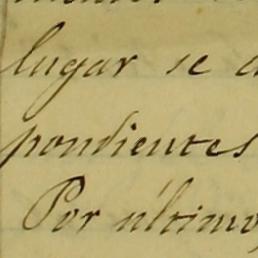 lugar se
pondientes
Por último,